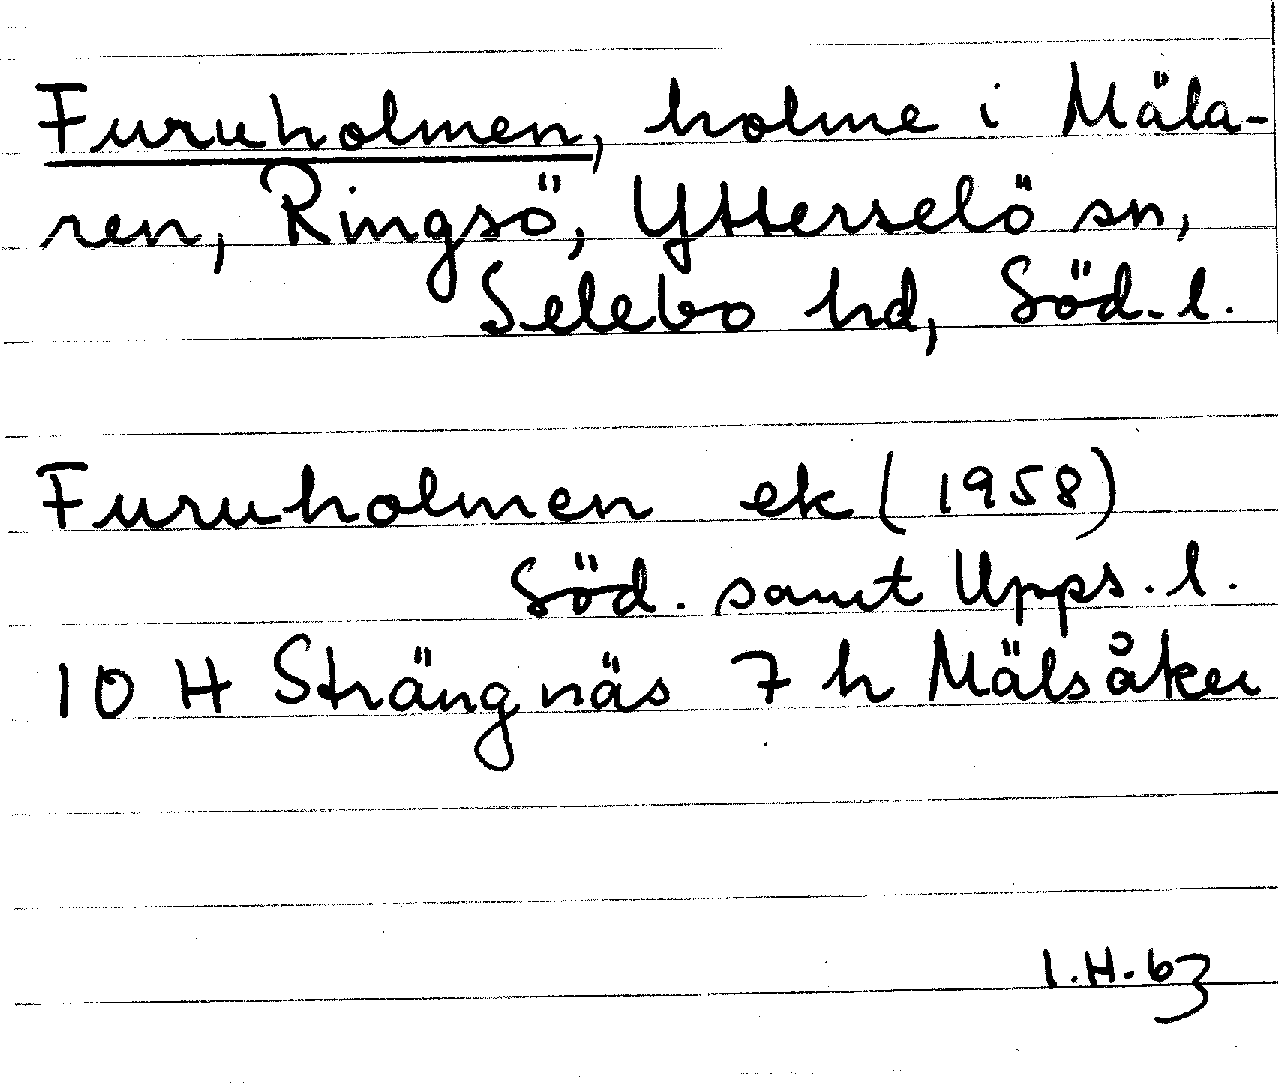 Furuholmen, holme i Mäla-
ren, Ringsö, Ytterselö sn,
Selebo hd, Söd. l.
Furuholmen ek (1958)
Söd. samt Upps. l.
10 H Strängnäs 7 h Mälsåker
I.H. 63